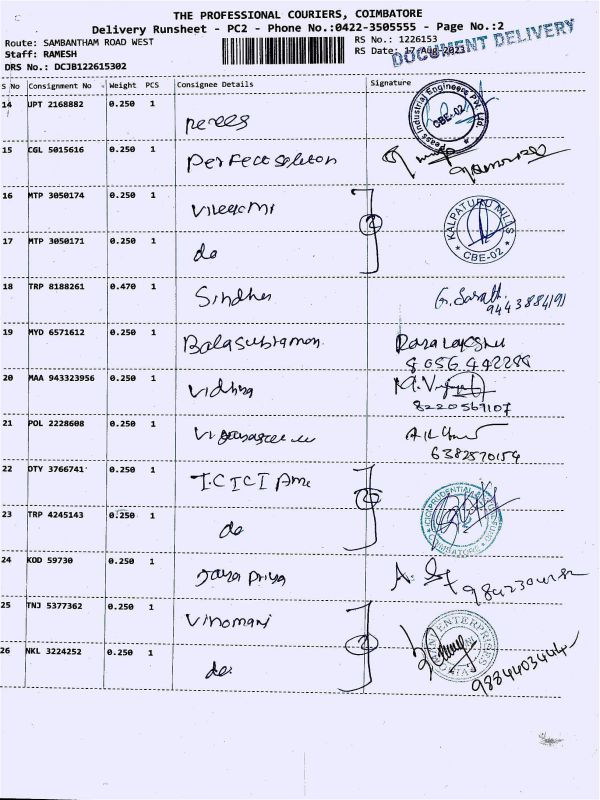 THE PROFESSIONAL COURIERS, COIMBATORE
Delivery Runsheet - PC2 - Phone No.:0422-3505555 - Page No.:2
Route: SAMBANTHAM ROAD WEST RS No.: 1226153
Staff: RAMESH RS Date: 17-Aug-2023
DOCUMENT DELIVERY
DRS No.: DCJB122615302
S No Consignment No Weight PCS Consignee Details Signature
14 UPT 2168882 0.250 1
Pease Industrial Engineers Pvt. Ltd. CBE-02
15 CGL 5015616 0.250 1 Perfect solution
16 MTP 3050174 0.250 1
2
KALPATURU MILLS CBE-02
17 MTP 3050171 0.250 1 do
18 TRP 8188261 0.470 1 Sindhu G. Sarath
9443884191
19 MYD 6571612 0.250 1 Balasubraman
8056442288
20 MAA 943323956 0.250 1 Vidhya
8220569107
21 POL 2228608 0.250 1
6382570154
22 OTY 3766741 0.250 1 ICICI Amc
2
ICICI PRUDENTIAL COIMBATORE
23 TRP 4245143 0.250 1 do
24 KOD 59730 0.250 1 Jaya Priya
25 TNJ 5377362 0.250 1 Vinomani
2
ENTERPRISES
26 NKL 3224252 0.250 1 do
9884403444